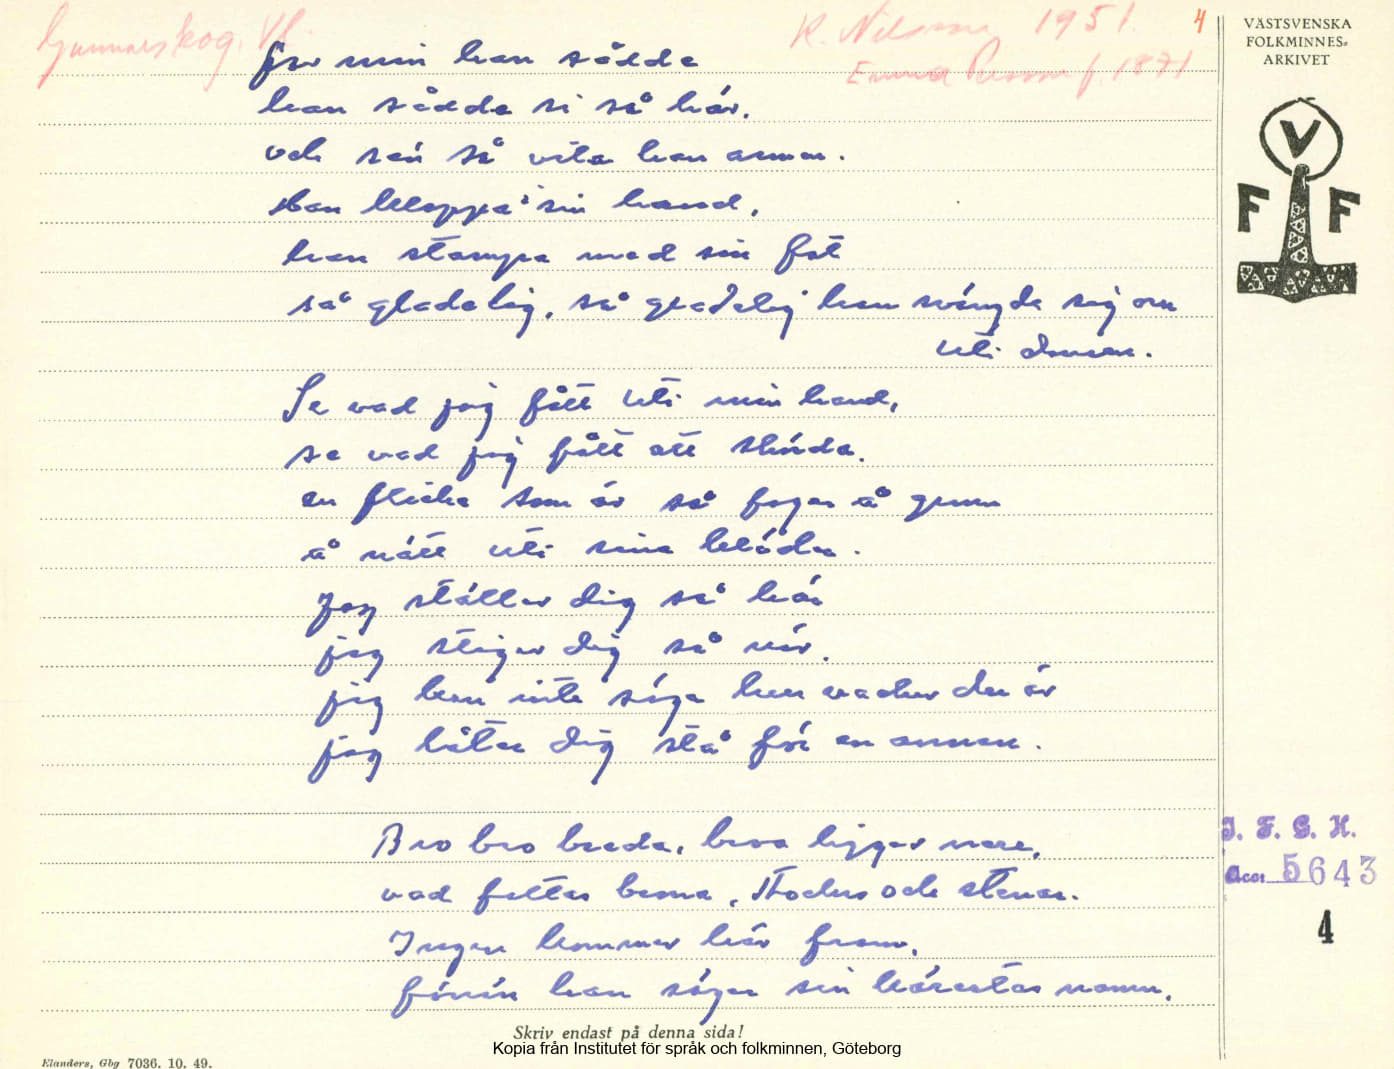 Gunnarskog. Vl.
K. Nilsson 1951.
Emma Persson f. 1871
4
VÄSTSVENSKA
FOLKMINNES-
ARKIVET
V
F F
far min han sådde
han sådde si så här.
och sen så vila han armen.
Han klappa i sin hand,
han stampa med sin fot
så gladelig, så gladelig han svängde sig om
uti dansen.
Se vad jag fått uti min hand,
se vad jag fått att sköda.
en flicka som är så fager å grann
å nätt uti sina kläder.
Jag ställer dig så här
jag stiger dig så när.
jag kan inte säga hur vacker du är
jag låter dig stå för en annan.
Bro bro breda, broa ligger nere,
vad fattas broarna, Stockar och stenar.
Ingen kommer här fram,
förrän han säger sin kärestas namn.
J. F. G. H.
Acc. 5643
4
Skriv endast på denna sida!
Kopia från Institutet för språk och folkminnen, Göteborg
Elanders, Gbg 7036. 10. 49.